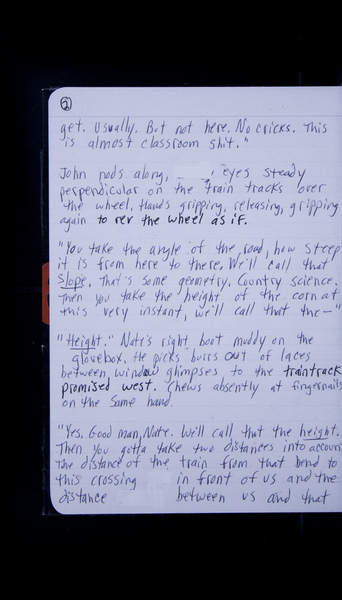 ②
get. Usually. But not here. No cricks. This
is almost classroom shit."
John nods along, , eyes steady
perpendicular on the train tracks over
the wheel, Hands gripping, releasing, gripping
again to rev the wheel as if.
"You take the angle of the road, how steep
it is from here to there. We'll call that
slope. That's some geometry. Country science.
Then you take the height of the corn at
this very instant, we'll call that the—"
"Height." Nate's right boot muddy on the
glovebox. He picks burrs out of laces
between window glimpses to the traintrack
promised west. Chews absently at fingernails
on the same hand.
"Yes. Good man, Nate. We'll call that the height.
Then you gotta take two distances into account
the distance of the train from that bend to
this crossing in front of us and the
distance between us and that